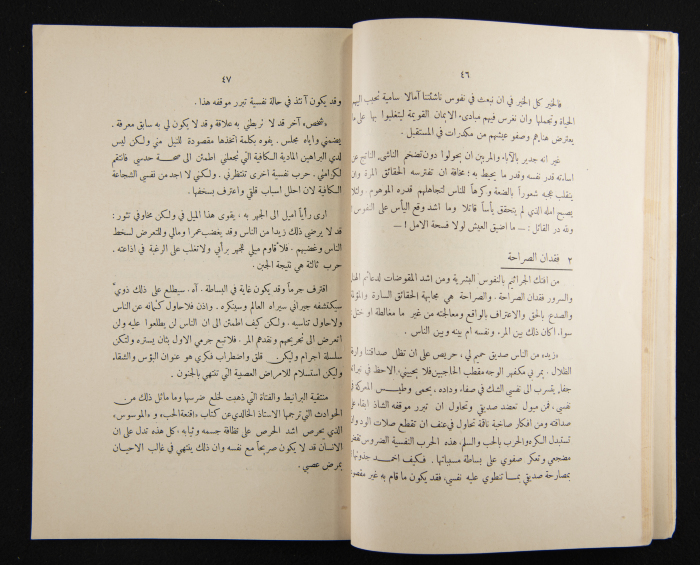 ٤٦
فالخير كل الخير في ان نبعث في نفوس ناشئتنا آمالا سامية تحبب اليهم
الحياة وتجملها وان نغرس فيهم مبادىء الايمان القويمة ليتغلبوا بها على ما
يعترض هناءهم وصفو عيشهم من مكدرات في المستقبل.
غير انه جدير بالآباء والمربين ان يحولوا دون تضخم الناشئ، الناتج عن
اساءته قدر نفسه وقدر ما يحيط به؛ مخافة ان تفترسه الحقائق المرة وان
ينقلب عجبه شعوراً بالضعة وكرهاً للناس لتجاهلهم قدره الموهوم. ولئلا
يصبح امله الذي لم يتحقق يأساً قاتلا وما اشد وقع اليأس على النفوس؛
ولله در القائل: — ما اضيق العيش لولا فسحة الامل! —
٢ فقدان الصراحة
من افتك الجراثيم بالنفوس البشرية ومن اشد المقوضات لدعائم الهناء
والسرور فقدان الصراحة. والصراحة هي مجابهة الحقائق السارة والمؤلمة
والصدع بالحق والاعتراف بالواقع ومعالجته من غير ما مغالطة او ختل
سواء اكان ذلك بين المرء ونفسه ام بينه وبين الناس.
«زيد» من الناس صديق حميم لي. حريص على ان تظل صداقتنا وارفة
الظلال. يمر بي مكفهر الوجه مقطب الحاجبين فلا يحييني. الاحظ في نبراته
جفاء يتسرب الى نفسي الشك في صفاء وداده. يحمى وطيس المعركة في
نفسي. فمن ميول تعضد صديقي وتحاول ان تبرر موقفه الشاذ ابقاء على
صداقته ومن افكار صاخبة ناقة تحاول في عنف ان تقطع صلات الود وان
تستبدل الكره والحرب بالحب والسلم. هذه الحرب النفسية الضروس تقض
مضجعي وتعكر صفوي على بساطة مسبباتها. فكيف اخمد جذوتها؟
بمصارحة صديقي بما تنطوي عليه نفسي. فقد يكون ما قام به غير مقصود
٤٧
وقد يكون آنئذ في حالة نفسية تبرر موقفه هذا.
«شخص» آخر قد لا تربطني به علاقة وقد لا يكون لي به سابق معرفة.
يضمني واياه مجلس. يفوه بكلمة اتخذها مقصودة للنيل مني ولكن ليس
لدي البراهين المادية الكافية التي تجعلني اطمئن الى صحة حدسي فانتقم
لكرامتي. حرب نفسية اخرى تنتظرني. ولكني لا اجد من نفسي الشجاعة
الكافية لان احلل اسباب قلقي واعترف بسخفها.
ارى رأياً اميل الى الجهر به. يقوى هذا الميل في ولكن مخاوفي تثور:
قد لا يرضي ذلك زيدا من الناس وقد يغضب عمرا ومالي وللتعرض لسخط
الناس وغضبهم. فلأقاوم ميلي للجهر برأيي ولاتغلب على الرغبة في اذاعته.
حرب ثالثة هي نتيجة الجبن.
اقترف جرماً وقد يكون غاية في البساطة. آه. سيطلع على ذلك ذوي
سيكتشفه جيراني سيراه العالم وسينكره. واذن فلاحاول كتمانه عن الناس
ولاحاول تناسيه. ولكن كيف اطمئن الى ان الناس لن يطلعوا عليه ولن
اتعرض الى تجريحهم ونقدهم المر. فلاتبع جرمي الاول بثان يستره ولتكن
سلسلة اجرام وليكن قلق واضطراب فكري هو عنوان البؤس والشقاء
وليكن استسلام للامراض العصبية التي تنتهي بالجنون.
منتقية البرانيط والفتاة التي ذهبت لخلع ضرسها وما ماثل ذلك من
الحوادث التي ترجمها الاستاذ الخالدي عن كتاب «اقنعة الحب» و«الموسوس»
الذي يحرص اشد الحرص على نظافة جسمه وثيابه، كل هذه تدل على ان
الانسان قد لا يكون صريحاً مع نفسه وان ذلك ينتهي في غالب الاحيان
بمرض عصبي.